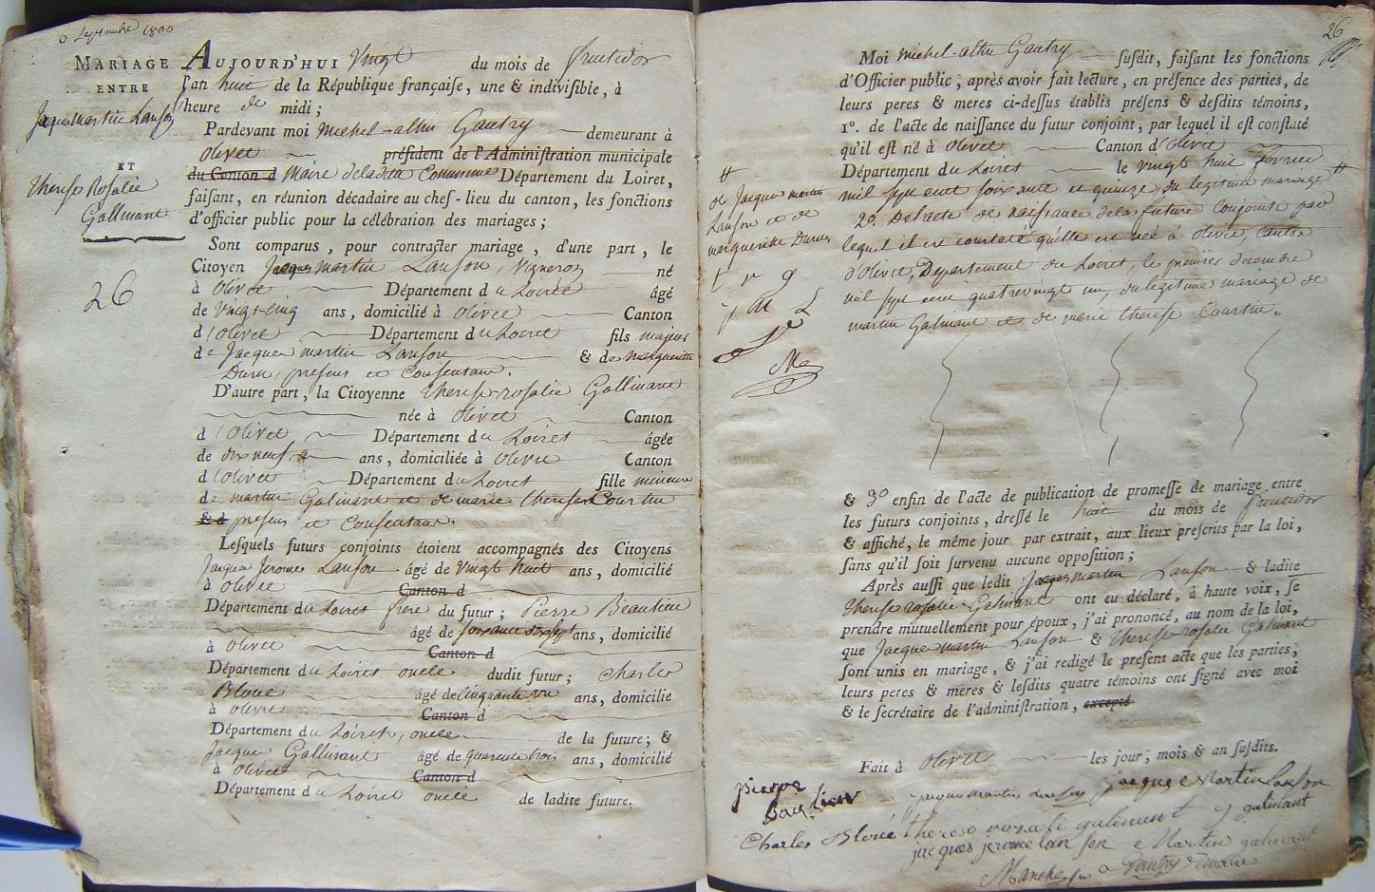 Septembre 1800
MARIAGE
ENTRE
Jacques martin Lanson
ET
therese Rosalie
Gallinant
26
AUJOURD'HUI vingt du mois de fructidor
l'an huit de la République françaiſe, une & indiviſible, à
heure de midi ;
Pardevant moi michel-altin Gautry demeurant à
Olivet préſident de l'Adminiſtration municipale
du Canton d Maire de ladite Commune Département du Loiret,
faiſant, en réunion décadaire au chef-lieu du canton, les fonctions
d'officier public pour la célébration des mariages ;
Sont comparus, pour contracter mariage, d'une part, le
Citoyen Jacques martin Lanson, Vigneron né
à Olivet Département du Loiret âgé
de Vingt-cinq ans, domicilié à Olivet Canton
d'Olivet Département du Loiret fils majeur
de Jacques martin Lanson & de marguerite
Duru, présens et Consentans.
D'autre part, la Citoyenne therese-rosalie Gallinant
née à Olivet Canton
d'Olivet Département du Loiret âgée
de dix neuf ans, domiciliée à Olivet Canton
d'Olivet Département du Loiret fille mineure
de martin Galinant et de marie therese Courtin
& d présens et Consentans.
Leſquels futurs conjoints étoient accompagnés des Citoyens
Jacques Jerome Lanson âgé de vingt huit ans, domicilié
à Olivet Canton d
Département du Loiret frere du futur ; Pierre Beaulieu
âgé de soixante dix sept ans, domicilié
à Olivet Canton d
Département du Loiret oncle dudit futur ; Charles
Bloué âgé de cinquante un ans, domicilié
à Olivet Canton d
Département du Loiret, oncle de la future ; &
Jacques Gallinant âgé de quarente trois ans, domicilié
à Olivet Canton d
Département du Loiret oncle de ladite future.
26
Moi michel-altin Gautry ſuſdit, faiſant les fonctions
d'Officier public, après avoir fait lecture, en préſence des parties, de
leurs peres & meres ci-deſſus établis préſens & deſdits témoins,
1º. de l'acte de naiſſance du futur conjoint, par lequel il eſt conſtaté
qu'il eſt né à Olivet Canton d'Olivet
Département du Loiret le vingt huit fevrier
mil sept cent soixante et quinze du legitime mariage #
#
de Jacques martin
Lanson et de
marguerite Duru
2º. De l'acte de naissance de la future Conjointe par
lequel il est constaté qu'elle est née à Olivet, Canton
d'Olivet, Département du Loiret, le premier decembre
mil sept cent quatrevingt un, du legitime mariage de
martin Galinant et de marie therese Courtin.
& 3º enfin de l'acte de publication de promeſſe de mariage entre
les futurs conjoints, dreſſé le huit du mois de fructidor
& affiché, le même jour par extrait, aux lieux preſcrits par la loi,
ſans qu'il ſoit ſurvenu aucune oppoſition ;
Après auſſi que ledit Jacques martin Lanson & ladite
therese rosalie Galinant ont eu déclaré, à haute voix, ſe
prendre mutuellement pour époux, j'ai prononcé, au nom de la loi,
que Jacques martin Lanson & therese rosalie Galinant
ſont unis en mariage, & j'ai redigé le preſent acte que les parties,
leurs peres & meres & leſdits quatre témoins ont ſigné avec moi
& le ſecrétaire de l'adminiſtration, excepté
Fait à Olivet les jour, mois & an ſuſdits.
pierre
Baulieu
jacque Martin lanson
Charles Bloué therese rosali galinant J galinant
jacques jerome lanson Martin galinant
Gautry maire